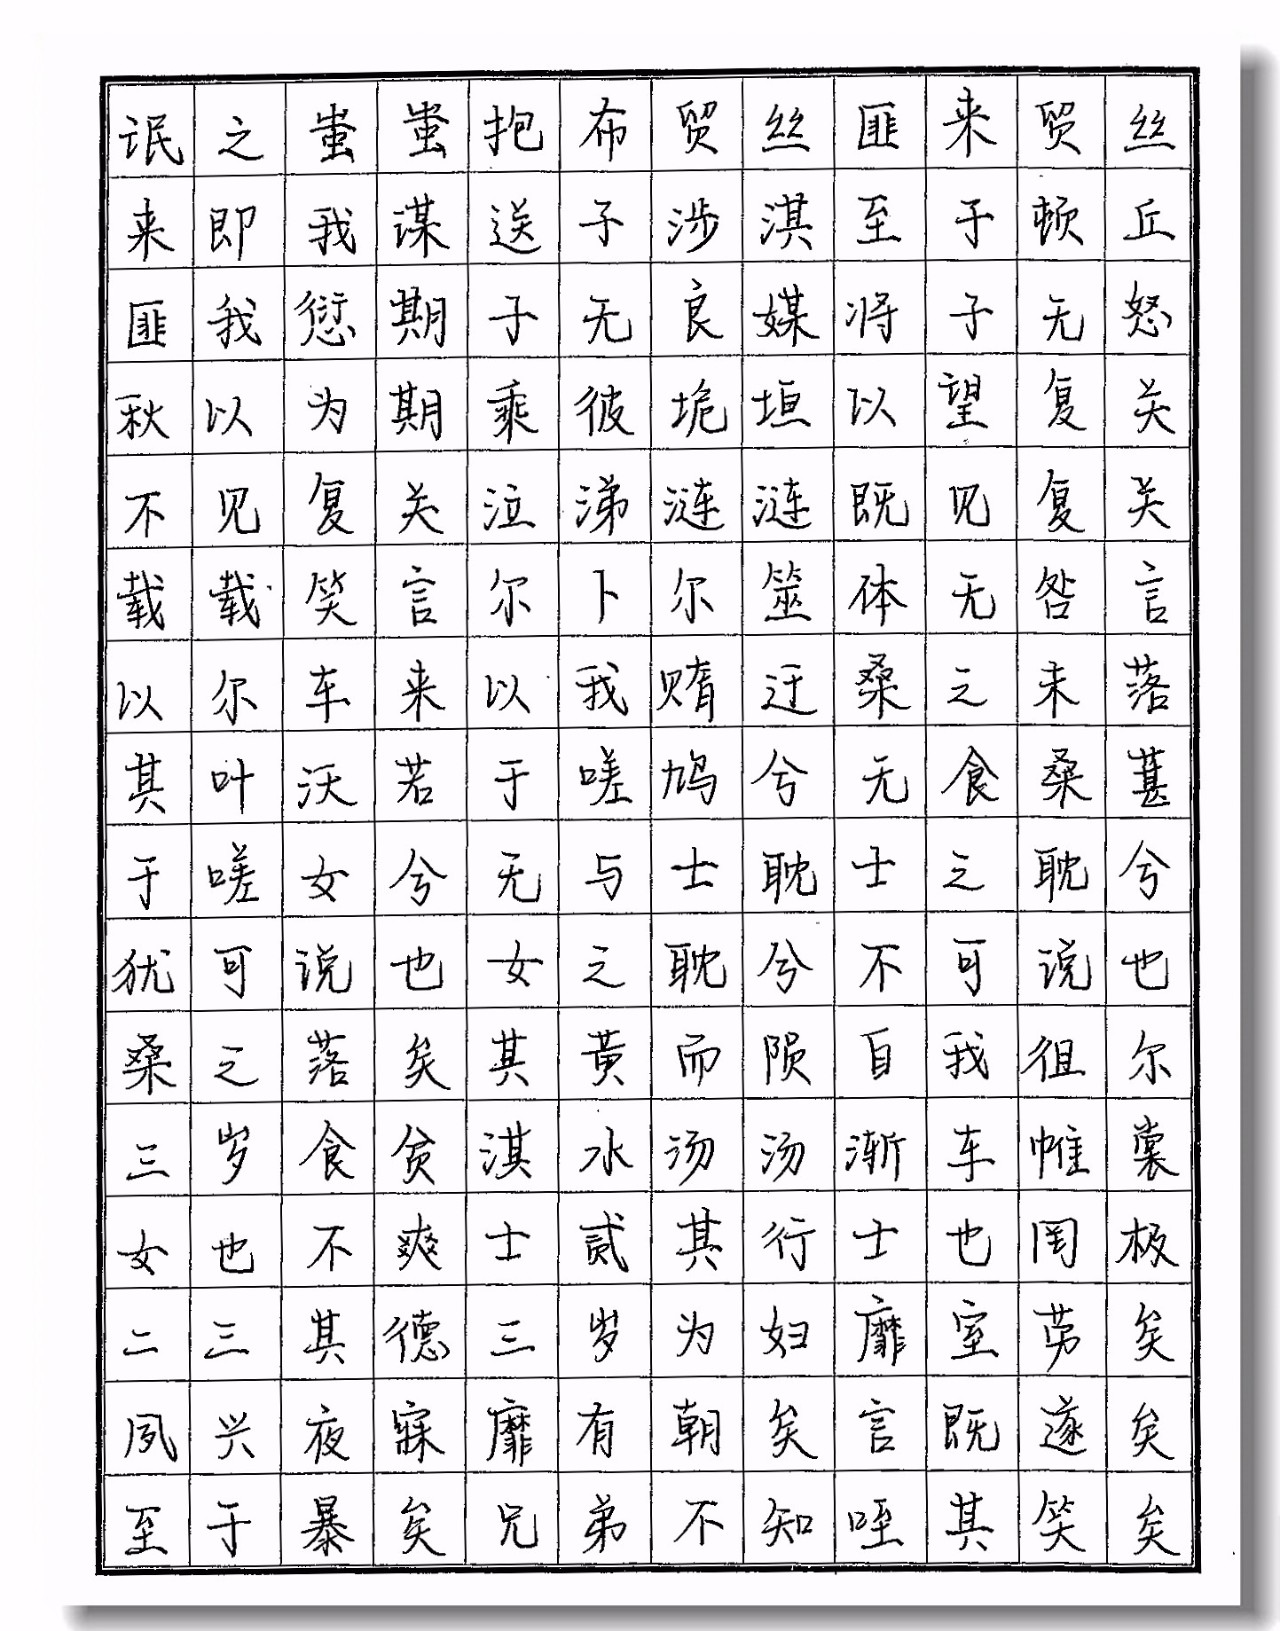 氓之蚩蚩抱布贸丝匪来贸丝
来即我谋送子涉淇至于顿丘
匪我愆期子无良媒将子无怒
秋以为期乘彼垝垣以望复关
不见复关泣涕涟涟既见复关
载载笑言尔卜尔筮体无咎言
以尔车来以我贿迁桑之未落
其叶沃若于嗟鸠兮无食桑葚
于嗟女兮无与士耽士之耽兮
犹可说也女之耽兮不可说也
桑之落矣其黄而陨自我徂尔
三岁食贫淇水汤汤渐车帷裳
女也不爽士贰其行士也罔极
二三其德三岁为妇靡室劳矣
夙兴夜寐靡有朝矣言既遂矣
至于暴矣兄弟不知咥其笑矣